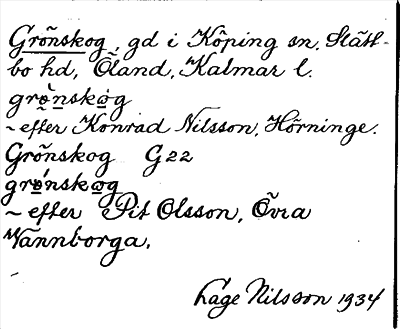 Grönskog, gd i Köping sn, Slätt-
bo hd, Öland, Kalmar l.
grø̀nskọg
~ efter Konrad Nilsson, Hörninge.
Grönskog G22
grǿnskọg
~ efter Pit Olsson, Övra
Vannborga.
Låge Nilsson 1934